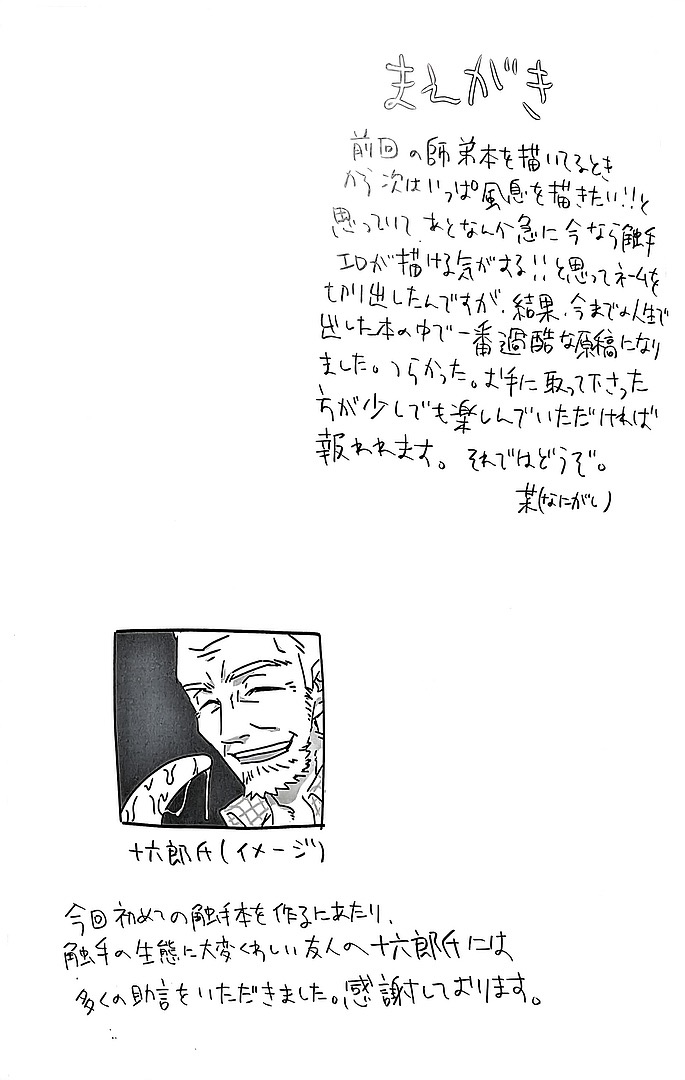 まえがき
前回の師弟本を描いてるとき
から次はいっぱ風息を描きたい!!と
思っていて、あとなんか急に今なら触手
エロが描ける気がする!!と思ってネームを
切り出したんですが、結果、今までの人生で
出した本の中で一番過酷な原稿になり
ました。つらかった。お手に取って下さった
方が少しでも楽しんでいただければ
報われます。それではどうぞ。
菜(なにがし)
十六郎氏(イメージ)
今回初めての触手本を作るにあたり、
触手の生態に大変くわしい友人の十六郎氏には
多くの助言をいただきました。感謝しております。